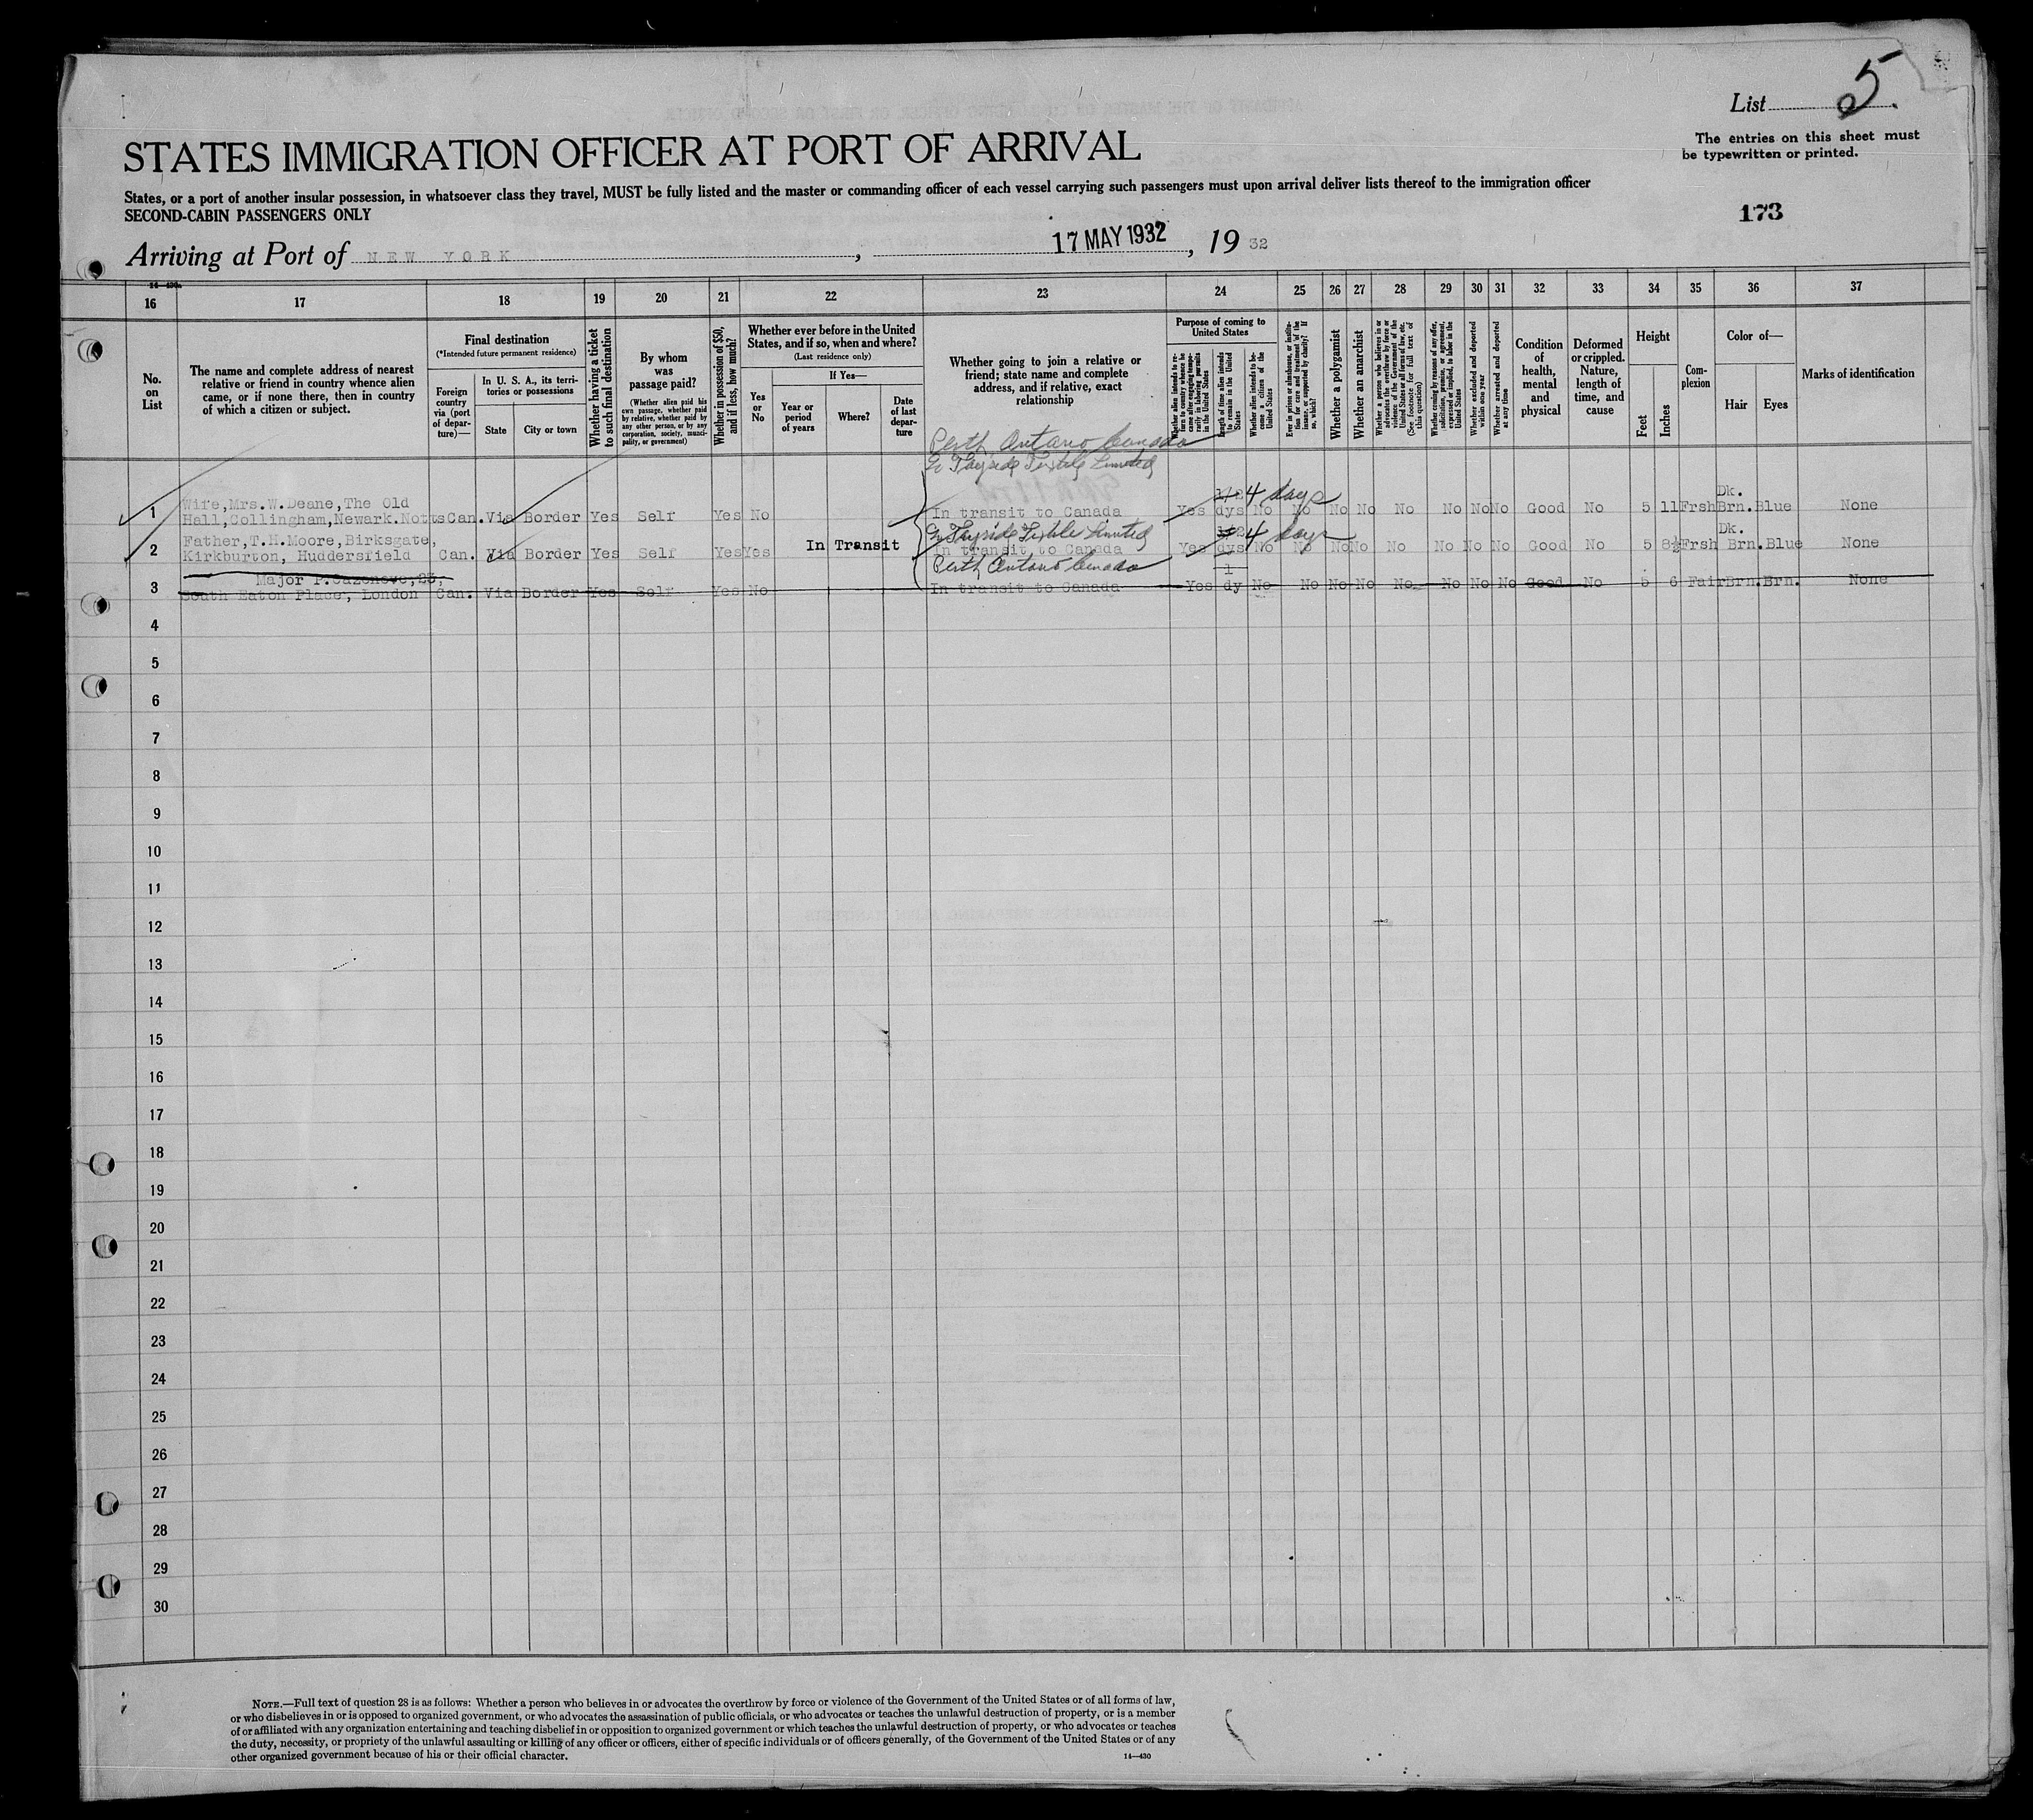 List 5.
The entries on this sheet must
be typewritten or printed.
STATES IMMIGRATION OFFICER AT PORT OF ARRIVAL
States, or a port of another insular possession, in whatsoever class they travel, MUST be fully listed and the master or commanding officer of each vessel carrying such passengers must upon arrival deliver lists thereof to the immigration officer
SECOND-CABIN PASSENGERS ONLY
173
Arriving at Port of NEW YORK, 17 MAY 1932, 19 32
16 17 18 19 20 21 22 23 24 25 26 27 28 29 30 31 32 33 34 35 36 37
No.
on
List
The name and complete address of nearest
relative or friend in country whence alien
came, or if none there, then in country
of which a citizen or subject.
Final destination
(*Intended future permanent residence)
Foreign
country
via (port
of depar-
ture)—
In U. S. A., its terri-
tories or possessions
State
City or town
Whether having a ticket
to such final destination
By whom
was
passage paid?
(Whether alien paid his
own passage, whether paid
by relative, whether paid by
any other person, or by any
corporation, society, munici-
pality, or government)
Whether in possession of $50,
and if less, how much?
Whether ever before in the United
States, and if so, when and where?
(Last residence only)
If Yes—
Yes
or
No
Year or
period
of years
Where?
Date
of last
depar-
ture
Whether going to join a relative or
friend; state name and complete
address, and if relative, exact
relationship
Purpose of coming to
United States
Whether alien intends to re-
turn to country whence he
came after engaging tempo-
rarily in laboring pursuits
in the United States
Length of time alien intends
to remain in the United
States
Whether alien intends to be-
come a citizen of the
United States
Ever in prison or almshouse, or institu-
tion for care and treatment of the
insane, or supported by charity? If
so, which?
Whether a polygamist
Whether an anarchist
Whether a person who believes in or
advocates the overthrow by force or
violence of the Government of the
United States or all forms of law, etc.
(See footnote for full text of
this question)
Whether coming by reasons of any offer,
solicitation, promise, or agreement,
expressed or implied, to labor in the
United States
Whether excluded and deported
within one year
Whether arrested and deported
at any time
Condition
of
health,
mental
and
physical
Deformed
or crippled.
Nature,
length of
time, and
cause
Height
Feet
Inches
Com-
plexion
Color of—
Hair
Eyes
Marks of identification
Perth Ontario Canada
Textile Limited
Wife,Mrs.W.Deane,The Old 4 days Dk.
1 Hall,Collingham,Newark.Notts Can. Via Border Yes Self Yes No In transit to Canada Yes dys No No No No No No No No Good No 5 11 Frsh Brn. Blue None
Father,T.H.Moore,Birksgate, Textile Limited 4 days Dk.
2 Kirkburton, Huddersfield Can. Via Border Yes Self Yes Yes In Transit In transit to Canada Yes dys No No No No No No No No Good No 5 8½ Frsh Brn. Blue None
Perth Ontario Canada
Major P.Cazenove,23, 1
3 South Eaton Place, London Can. Via Border Yes Self Yes No In transit to Canada Yes dy No No No No No No No No Good No 5 6 Fair Brn. Brn. None
4
5
6
7
8
9
10
11
12
13
14
15
16
17
18
19
20
21
22
23
24
25
26
27
28
29
30
NOTE.—Full text of question 28 is as follows: Whether a person who believes in or advocates the overthrow by force or violence of the Government of the United States or of all forms of law,
or who disbelieves in or is opposed to organized government, or who advocates the assassination of public officials, or who advocates or teaches the unlawful destruction of property, or is a member
of or affiliated with any organization entertaining and teaching disbelief in or opposition to organized government or which teaches the unlawful destruction of property, or who advocates or teaches
the duty, necessity, or propriety of the unlawful assaulting or killing of any officer or officers, either of specific individuals or of officers generally, of the Government of the United States or of any
other organized government because of his or their official character.
14—430